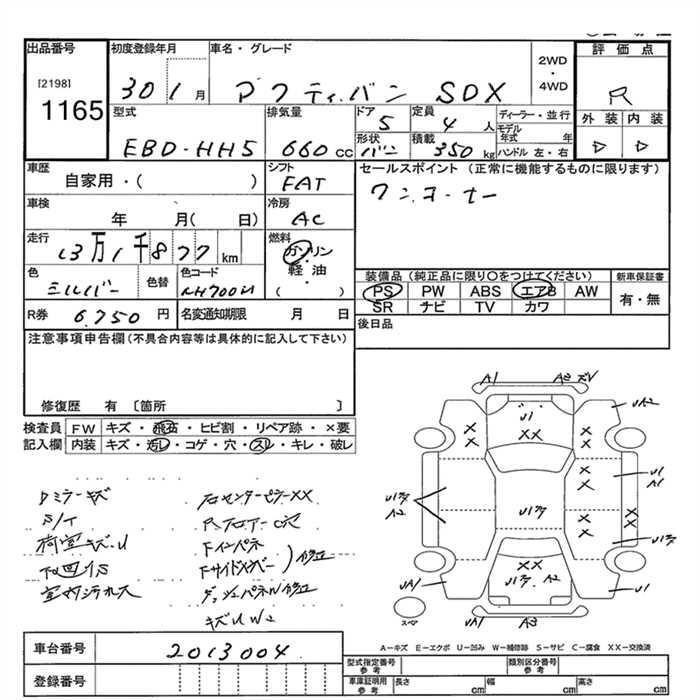 出品番号 初度登録年月 車名・グレード 評価点
[2198]
1165
30 1月 アクティバン SDX
2WD
・
4WD
R
型式 排気量 ドア 定員 ディーラー・並行 外装 内装
EBD-HH5 660cc 5 4人
モデル年式 年
形状 積載
バン 350kg ハンドル 左・右
車歴 シフト セールスポイント (正常に機能するものに限ります)
自家用・( ) FAT
ワンオーナー
車検 冷房
年 月( 日) AC
走行 燃料
13万1千877km ガソリン
軽油
( )
色 色替 色コード
シルバー NH700M
装備品(純正品に限り○をつけてください) 新車保証書
PS PW ABS エアB AW 有・無
SR ナビ TV カワ
R券 6,750円 名変通知期限 月 日
後日品
注意事項申告欄(不具合内容等は具体的に記入して下さい)
修復歴 有 〔箇所 〕
検査員 FW キズ・飛石・ヒビ割・リペア跡・×要
記入欄 内装 キズ・汚レ・コゲ・穴・スレ・キレ・破レ
A1
U1
XX
UA2
U1
A1
A2
XX
U1
UA1
A2
スペア
UA1
A3
Dミラーキズ
S/T
荷室キズ・U
下回りS
室内汚れ大
右センターピラーXX
Rフロアー
Fインパネ
Fサイドメンバー
)修正
ダッシュパネル修正
キズUW2
車台番号 2013004
登録番号
A-キズ E-エクボ U-凹み W-補修跡 S-サビ C-腐食 XX-交換済
型式指定番号 類別区分番号
参考 参考
車庫証明用 長さ 幅 高さ
参考 cm cm cm